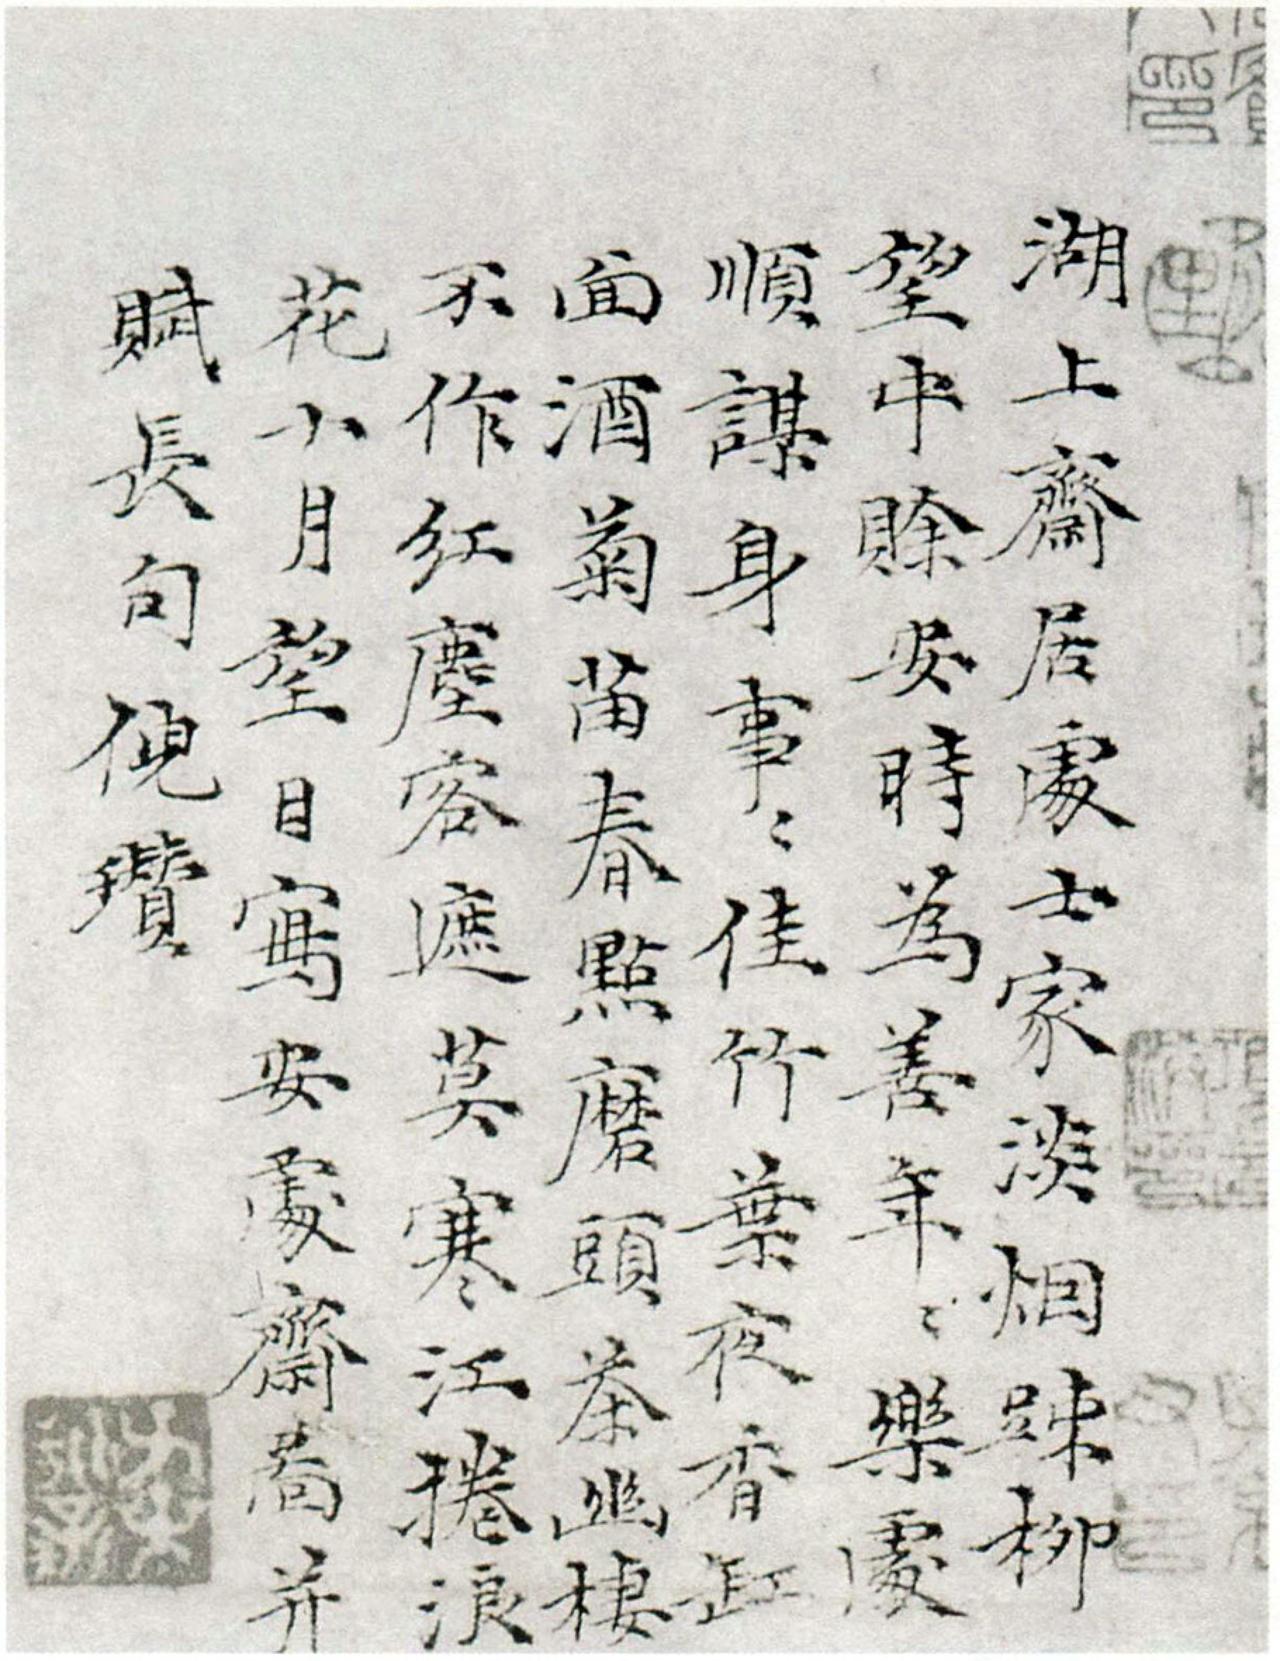 湖上齋居處士家淡烟踈柳
望中賖安時為善年〻樂處
順謀身事〻佳竹葉夜香缸
面酒菊苗春點磨頭茶幽棲
不作紅塵客遮莫寒江捲浪
花小月望日寫安處齋啚并
賦長句倪瓚